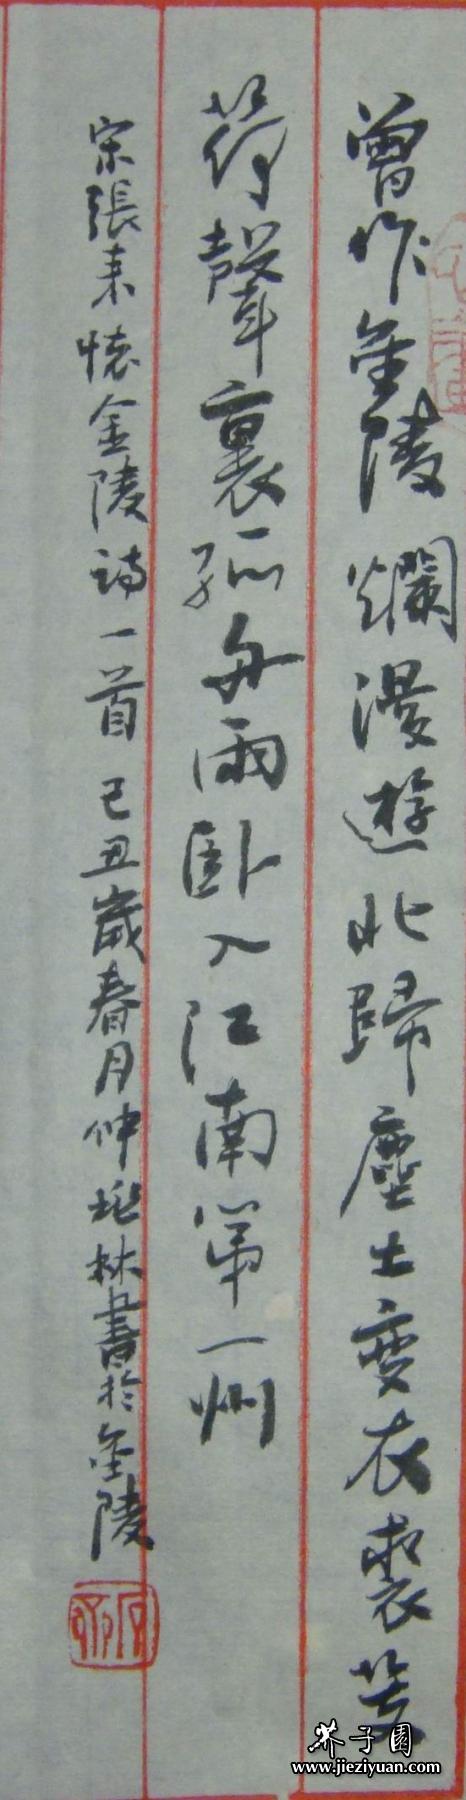 曾作金陵爛漫遊北歸塵土變衣裘芰
荷聲裏孤舟雨卧入江南第一州
宋張耒懷金陵詩一首己丑歲春月仲 林書於金陵
芥子園
www.jieziyuan.com